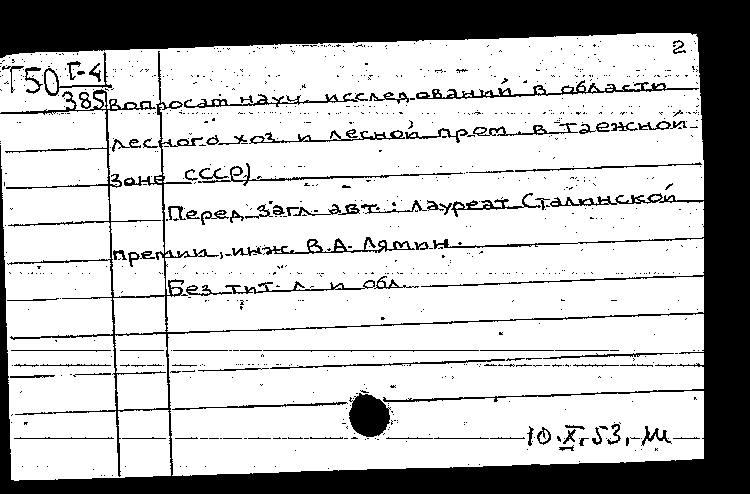 2
Т50 Г-4
385
вопросам науч. исследований в области
лесного хоз. и лесной пром. в таежной
зоне СССР).
Перед загл. авт.: лауреат Сталинской
премии, инж. В.А. Лямин.
Без тит. л. и обл.
10.X.53, ш